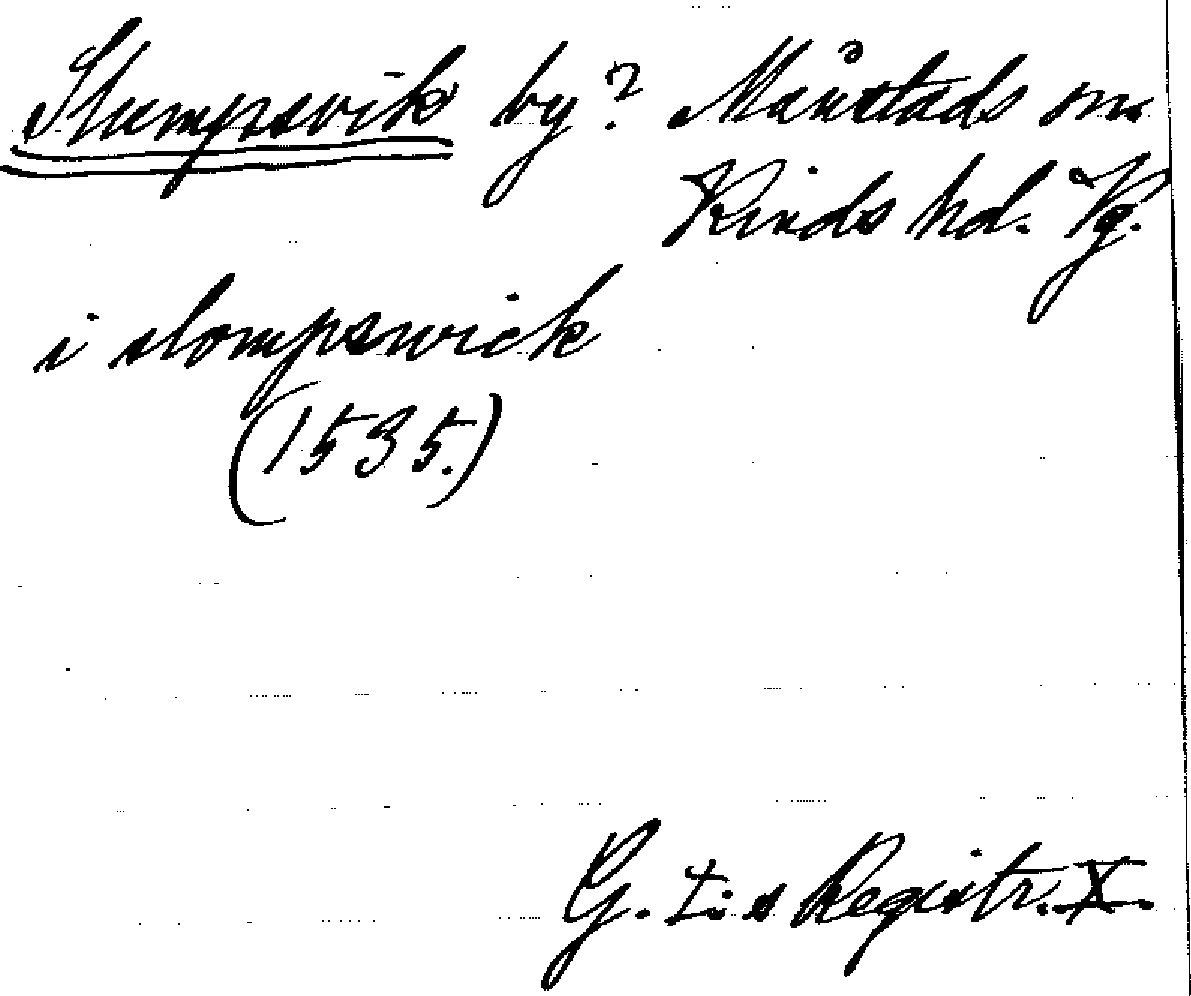 Slumpsvik by? Månstads sn.
Kinds hd. Vg.
i slompswick
(1535.)
G. I:s Registr. X.